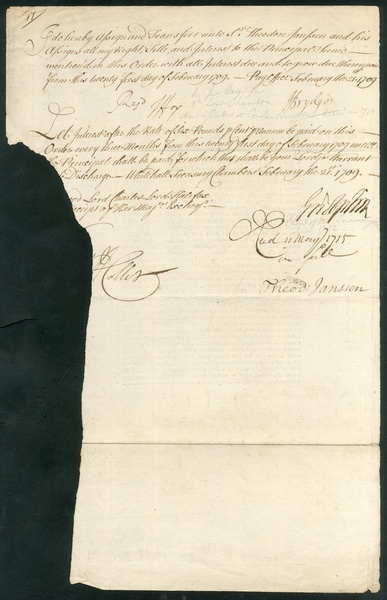 I do hereby Assign and Transferr unto Sr. Theodore Janssen and his
Assigns all my Right Title and Interest to the Principal Summe
mentioned in this Order with all Interest due and to grow due thereupon
from this twenty first day of February 1709. — Pay Office February the 21st 1709
J Brydges
Let Interest after the Rate of Six Pounds p Cent p Annum be paid on this
Order every three Months from this twenty first day of February 1709 untill
the Principall shall be paid, for which this shall be your Lordps Warrant
Discharge — Whitehall Treasury Chambers February the 21st 1709. —
Lord Charles Lord Halifax
Receipt of Her Majts Excheqr. —
Godolphin
11 May 1715
in full
Theod: Janssen